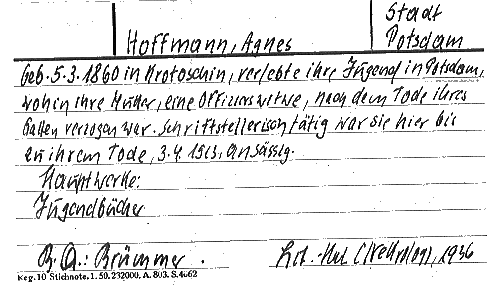 Stadt
Hoffmann, Agnes Potsdam
Geb. 5.3.1860 in Krotoschin, verlebte ihre Jugend in Potsdam,
wohin ihre Mutter, eine Offizierswitwe, nach dem Tode ihres
Gatten verzogen war. Schriftstellerisch tätig war sie hier bis
zu ihrem Tode, 3.4. 1913, ansässig.
Hauptwerke:
Jugendbücher
B. A.: Brümmer. (Nekrolog), 1936
Keg. 10 Stichnote. 1. 50. 232000. A. 803. S. 4662